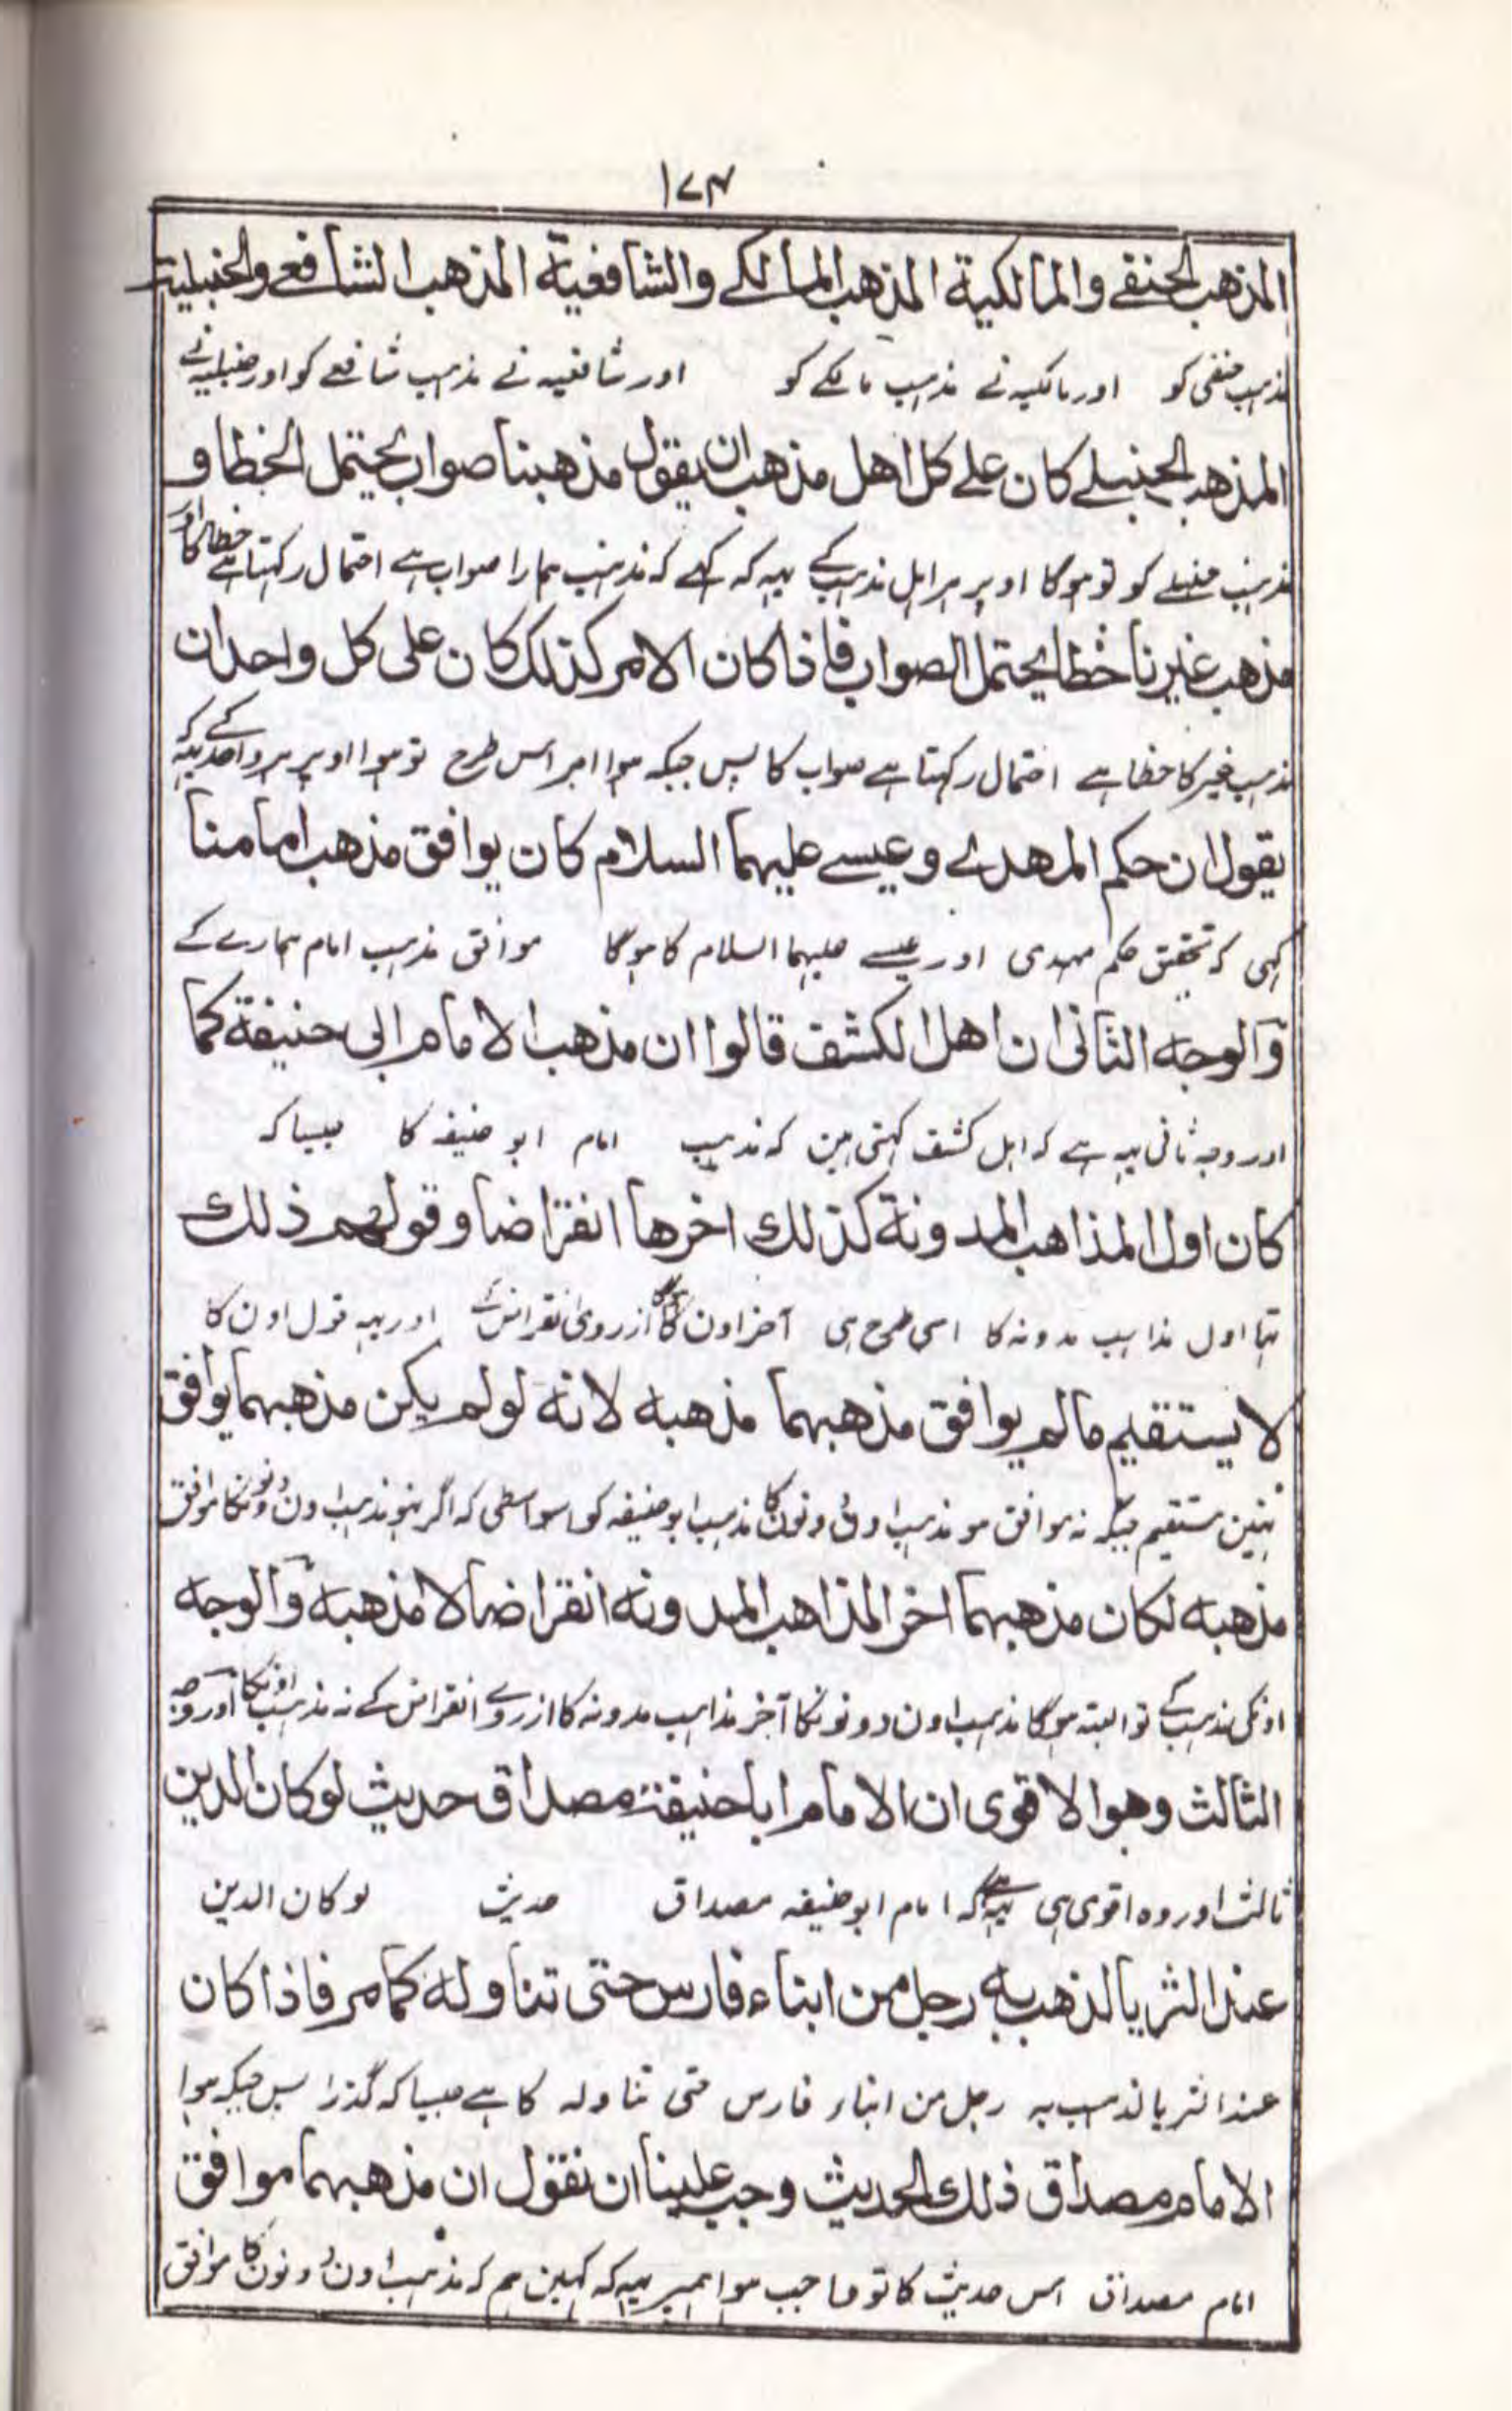 ١٧٤
المذهب الحنفے والمالكية المذهب المالكے والشافعيّة المذهب الشافعے والحنبلية
مذہب حنفی کو اور مالکیہ نے مذہب مالکے کو اور شافعیہ نے مذہب شافعے کو اور حنبلیہ نے
المذهب الحنبلے كان علے كل اهل مذهب ان يقول مذهبنا صواب يحتمل الخطا و
مذہب حنبلے کو تو ہوگا اوپر ہر اہل مذہب کے یہہ کہ کہے کہ مذہب ہمارا صواب ہے احتمال رکہتا ہے خطا کا اور
مذهب غيرنا خطا يحتمل الصواب فاذا كان الامر كذلك كان على كل واحد ان
مذہب غیر کا خطا ہے احتمال رکہتا ہے صواب کا پس جبکہ ہوا امر اس طرح تو ہوا اوپر ہر واحد کے یہہ کہ
يقول ان حكم المهدے وعيسے عليهما السلام كان يوافق مذهب امامنا
کہی کہ تحقیق حکم مہدی اور عیسے علیہما السلام کا ہوگا موافق مذہب امام ہمارے کے
والوجه الثانى ان اهل الكشف قالوا ان مذهب الامام ابى حنيفة كما
اور وجہ ثانی یہہ ہے کہ اہل کشف کہتی ہین کہ مذہب امام ابو حنیفہ کا جیسا کہ
كان اول المذاهب المدونة كذلك اخرها انقراضا وقولهم ذلك
تہا اول مذاہب مدونہ کا اسی طرح ہی آخر اون کا ہوگا از روی انقراض کے اور یہہ قول اون کا
لا يستقيم مالم يوافق مذهبهما مذهبه لانه لو لم يكن مذهبهما يوافق
نہین مستقیم جبکہ نہ موافق ہو مذہب اون دونون کا مذہب ابو حنیفہ کو اسواسطی کہ اگر نہو مذہب اون دونونکا موافق
مذهبه لكان مذهبهما اخر المذاهب المدونه انقراضا لا مذهبه والوجه
اونکی مذہب کے تو البتہ ہوگا مذہب اون دونونکا آخر مذاہب مدونہ کا از روے انقراض کے نہ مذہب اونکا اور وجہ
الثالث وهو الاقوى ان الامام ابا حنيفة مصداق حديث لو كان الدين
ثالث اور وہ اقوی ہی یہہ ہے کہ امام ابو حنیفہ مصداق حدیث لو کان الدین
عند الثريا لذهب به رجل من ابناء فارس حتى تناوله كما مر فاذا كان
عند الثریا لذہب بہ رجل من ابناء فارس حتی تناولہ کا ہے جیسا کہ گذرا پس جبکہ ہوا
الامام مصداق ذلك الحديث وجب علينا ان نقول ان مذهبهما موافق
امام مصداق اس حدیث کا تو واجب ہوا ہمپر یہہ کہ کہین ہم کہ مذہب اون دونون کا موافق